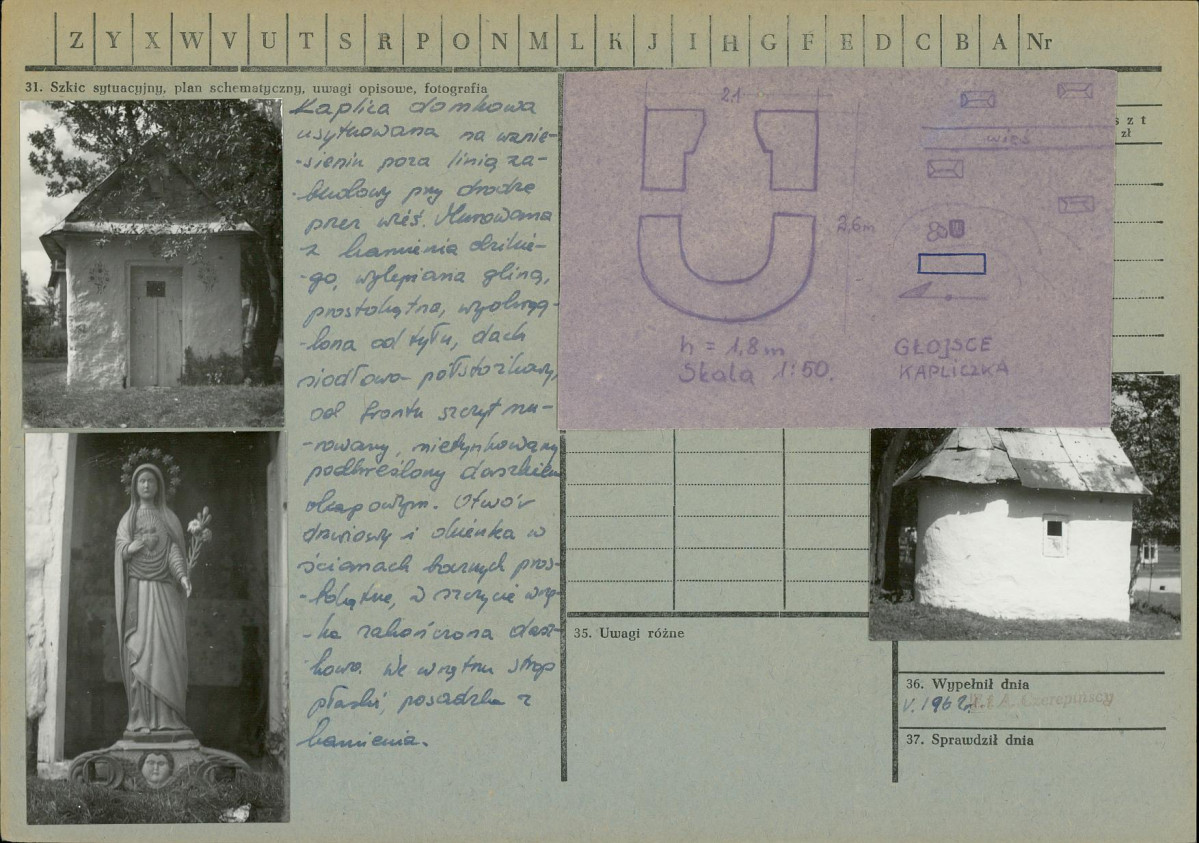 Z Y X W V U T S R P O N M L K J I H G F E D C B A Nr
31. Szkic sytuacyjny, plan schematyczny, uwagi opisowe, fotografia
Kaplica domkowa
usytuowana na wznie-
-sieniu poza linią za-
-budowy przy drodze
przez wieś. Murowana
z kamienia dzikie-
-go, wylepiana gliną,
prostokątna, wyokrąg-
-lona od tyłu, dach
siodłowo-półstożkowy,
od frontu szczyt mu-
-rowany, nietynkowany
podkreślony daszkiem
okapowym. Otwór
drzwiowy i okienka w
ścianach bocznych pros-
-tokątne, w szczycie wnę-
-ka zakończona dasz-
kowo. We wnętrzu strop
płaski, posadzka z
kamienia.
2.1
2,6m
wieś
h = 1,8 m
Skala 1:50.
GŁOJSCE
KAPLICZKA
s z t
zł
35. Uwagi różne
36. Wypełnił dnia
V. 1962 r. T. i A. Czerepińscy
37. Sprawdził dnia